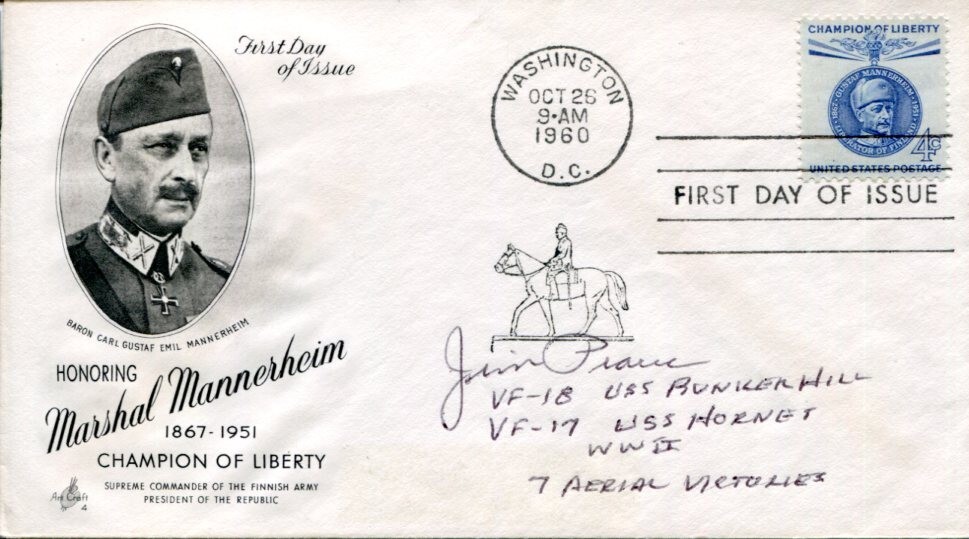 First Day
of Issue
BARON CARL GUSTAF EMIL MANNERHEIM
HONORING
Marshal Mannerheim
1867-1951
CHAMPION OF LIBERTY
SUPREME COMMANDER OF THE FINNISH ARMY
PRESIDENT OF THE REPUBLIC
Art Craft
4
WASHINGTON
OCT 26
9-AM
1960
D.C.
CHAMPION OF LIBERTY
1867 · GUSTAF MANNERHEIM · 1951
LIBERATOR OF FINLAND
4¢
UNITED STATES POSTAGE
FIRST DAY OF ISSUE
Jim Pearce
VF-18 USS BUNKER HILL
VF-17 USS HORNET
WW II
7 AERIAL VICTORIES